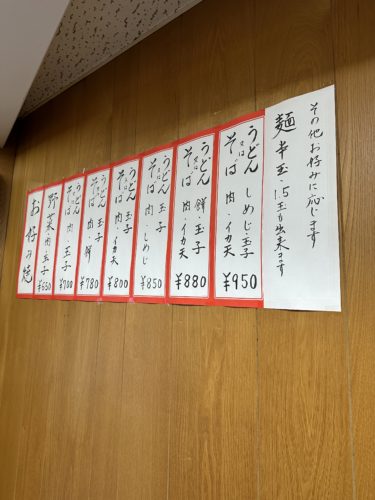 その他お好みに応じます
麺 半玉・1.5玉も出来ます
うどん しめじ・玉子
そば 肉・イカ天
¥950
うどん 餅・玉子
そば 肉・イカ天
¥880
うどん 玉子
そば 肉・しめじ
¥850
うどん 玉子
そば 肉・イカ天
¥800
うどん 玉子
そば 肉・餅
¥780
うどん 玉子
そば 肉
¥700
野菜・肉・玉子
¥650
お好み焼